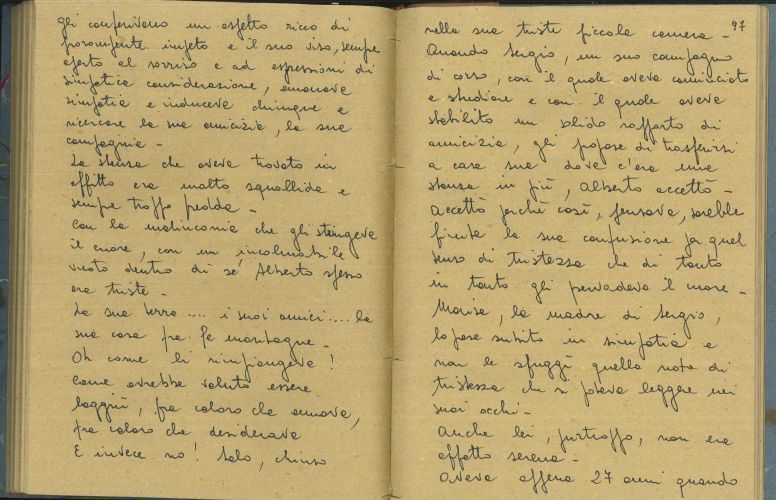 gli conferivano un aspetto ricco di
prorompente impeto e il suo viso, sempre
aperto al sorriso e ad espressioni di
simpatica considerazione, emanava
simpatia e induceva chiunque a
ricercare la sua amicizia, la sua
compagnia -
La stanza che aveva trovato in
affitto era molto squallida e
sempre troppo fredda -
Con la malinconia che gli stringeva
il cuore, con un incolmabile
vuoto dentro di sé Alberto spesso
era triste -
La sua terra .... i suoi amici .... la
sua casa fra le montagne -
Oh come li rimpiangeva !
Come avrebbe voluto essere
laggiù, fra coloro che amava,
fra coloro che desiderava
E invece no ! Solo, chiuso
97
nella sua triste piccola camera -
Quando Sergio, un suo compagno
di corso, con il quale aveva cominciato
a studiare e con il quale aveva
stabilito un solido rapporto di
amicizia, gli propose di trasferirsi
a casa sua dove c'era una
stanza in più, Alberto accettò -
Accettò perchè così, pensava, sarebbe
finita la sua confusione e quel
senso di tristezza che di tanto
in tanto gli pervadeva il cuore -
Marisa, la madre di Sergio,
lo prese subito in simpatia e
non le sfuggì quella nota di
tristezza che si poteva leggere nei
suoi occhi -
Anche lei, purtroppo, non era
affatto serena -
Aveva appena 27 anni quando